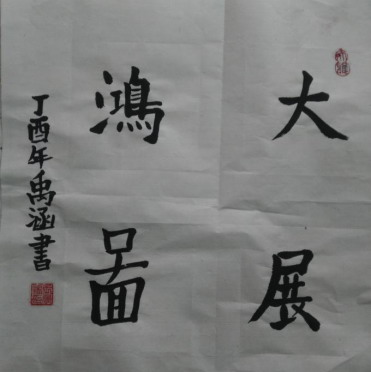 大展
鴻啚
丁酉年禹涵書